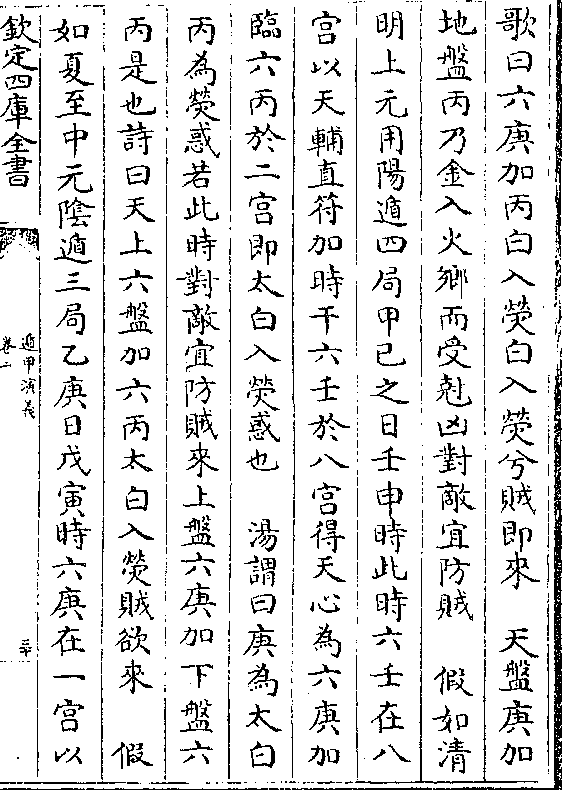 歌曰六庚加丙白入熒白入熒兮賊即來　天盤庚加
地盤丙乃金入火鄉而受尅凶對敵宜防賊　假如清
明上元用陽遁四局甲己之日壬申時此時六壬在八
宮以天輔直符加時干六壬於八宮得天心為六庚加
臨六丙於二宮即太白入熒惑也　湯謂曰庚為太白
丙為熒惑若此時對敵宜防賊來上盤六庚加下盤六
丙是也詩曰天上六盤加六丙太白入熒賊欲來　假
如夏至中元陰遁三局乙庚日戊寅時六庚在一宮以
欽定四庫全書
遁甲演義
卷二
二十